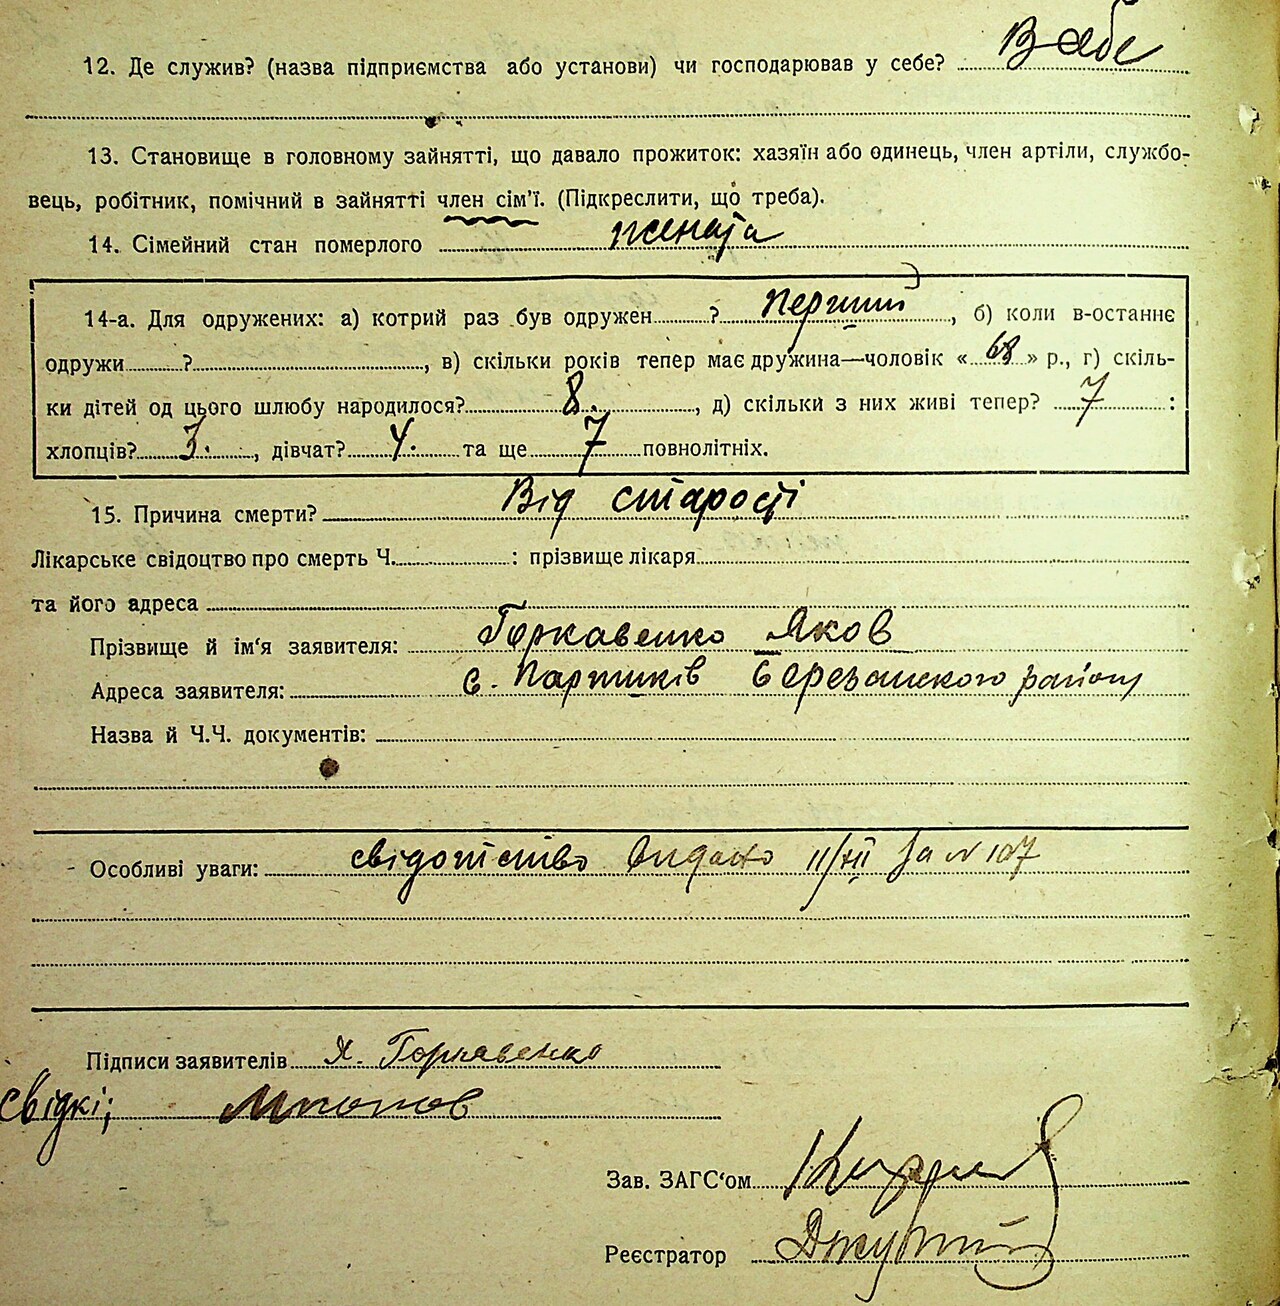 12. Де служив? (назва підприємства або установи) чи господарював у себе?
13. Становище в головному зайнятті, що давало прожиток: хазяїн або одинець, член артіли, службо-
вець, робітник, помічний в зайнятті член сім’ї. (Підкреслити, що треба).
14. Сімейний стан померлого жената
14-а. Для одружених: а) котрий раз був одружен ? перший, б) коли в-останнє
одружи ? , в) скільки років тепер має дружина—чоловік « 68 » р., г) скіль-
ки дітей од цього шлюбу народилося? 8. , д) скільки з них живі тепер? 7 :
хлопців? 3. , дівчат? 4. та ще 7 повнолітніх.
15. Причина смерти? Від старості
Лікарське свідоцтво про смерть Ч. : прізвище лікаря
та його адреса
Прізвище й ім‘я заявителя: Горкавенко Яков
Адреса заявителя: с. Паришків Березанського району
Назва й Ч.Ч. документів:
Особливі уваги: свідотство видано 11/XII за № 107
Підписи заявителів Я. Горкавенко
свідкі;
Зав. ЗАГС‘ом
Реєстратор